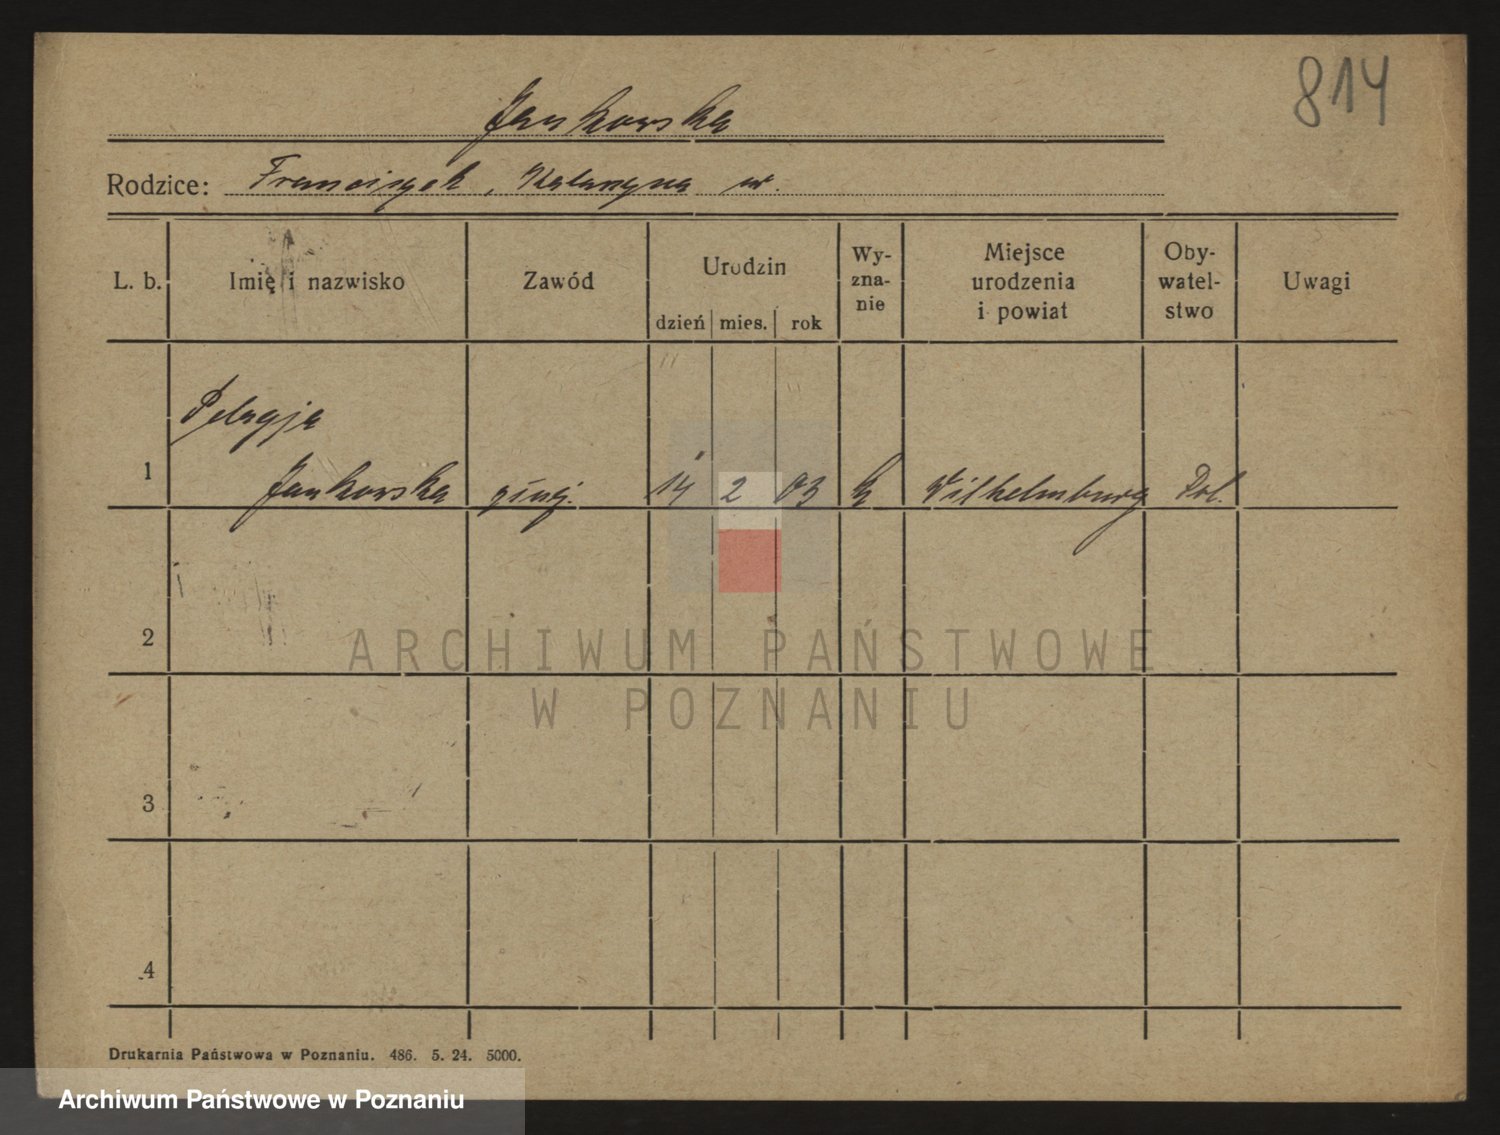 814
Jankowska
Rodzice: Franciszek, Katarzyna w.
L. b. Imię i nazwisko Zawód Urodzin dzień mies. rok Wy-
zna-
nie Miejsce
urodzenia
i powiat Oby-
watel-
stwo Uwagi
Pelagja
1 Jankowska 14 2 03 k Wilhelmsburg Pol.
2
3
4
ARCHIWUM PAŃSTWOWE
W POZNANIU
Drukarnia Państwowa w Poznaniu. 486. 5. 24. 5000.
Archiwum Państwowe w Poznaniu